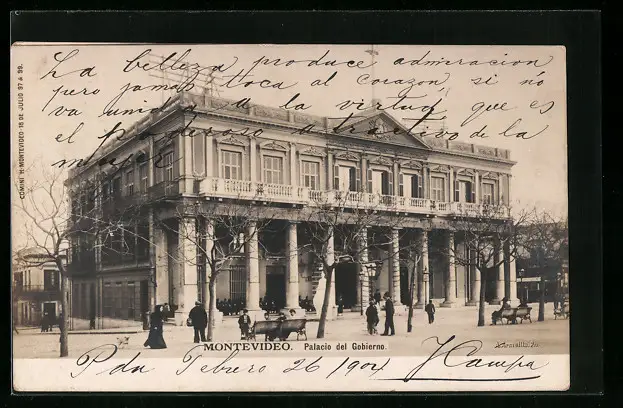 La belleza produce admiracion
pero jamas toca al corazon, si no
va unida a la virtud, que es
el poderoso atractivo de la
mujer
COMINI H. MONTEVIDEO - 18 DE JULIO 97 & 99.
MONTEVIDEO. Palacio del Gobierno.
Febrero 26 1904